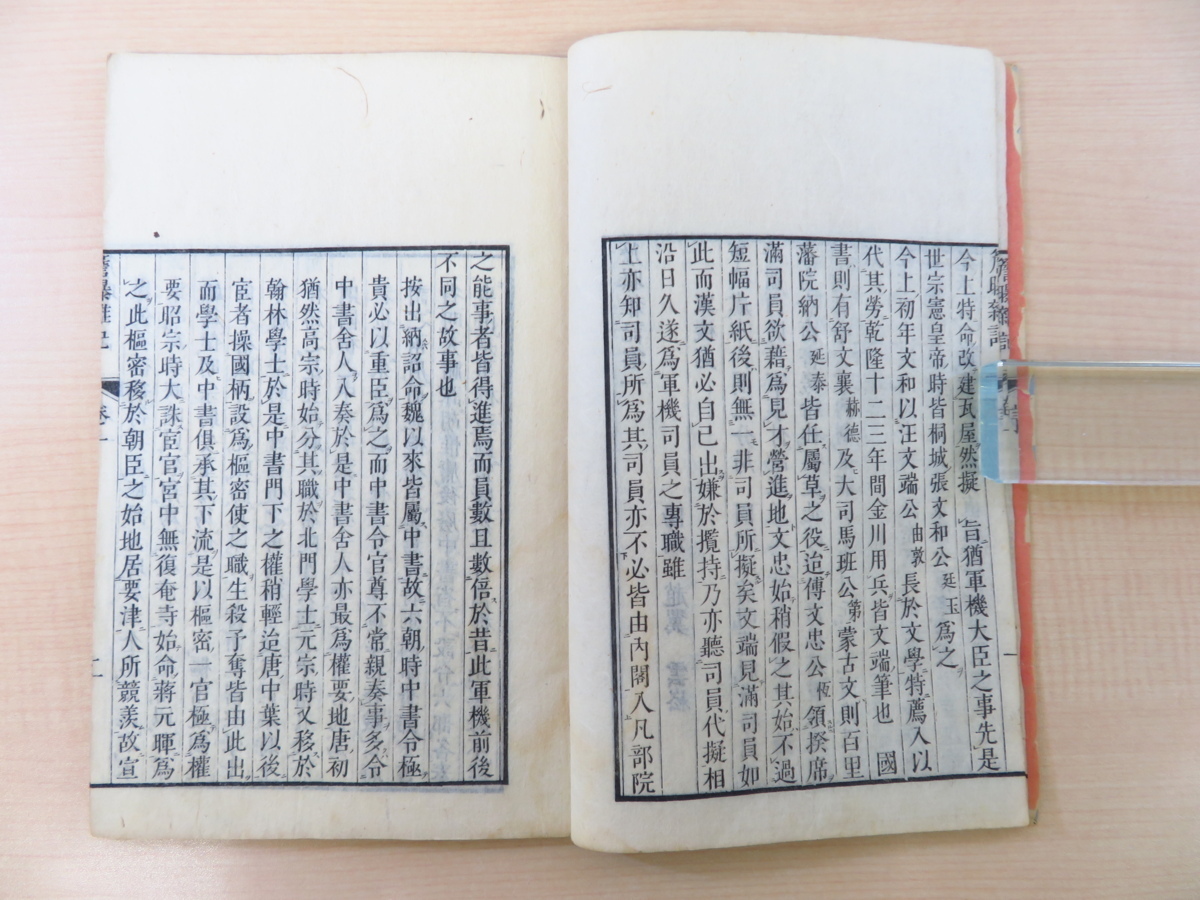 簷曝雜記
今上特命改建瓦屋然擬 旨猶軍機大臣之事先是
世宗憲皇帝時皆桐城張文和公廷玉為之
今上初年文和以汪文端公由敦長於文學特薦入以
代其勞乾隆十二三年間金川用兵皆文端筆也 國
書則有舒文襄赫德及大司馬班公第蒙古文則百里
藩院納公延泰皆任屬草之役迨傅文忠公恆領揆席
滿司員欲藉為見才營進地文忠始稍假之其始不過
短幅片紙後則無一非司員所擬矣文端見滿司員如
此而漢文猶必自己出嫌於攬持乃亦聽司員代擬相
沿日久遂為軍機司員之專職雖
上亦知司員所為其司員亦不必皆由內閣入凡部院
之能事者皆得進焉而員數且數倍於昔此軍機前後
不同之故事也
按出納詔命魏以來皆屬中書故六朝時中書令極
貴必以重臣為之而中書令官尊不常親奏事多令
中書舍人入奏於是中書舍人亦最為權要地唐初
猶然高宗時始分其職於北門學士元宗時又移於
翰林學士於是中書門下之權稍輕迨唐中葉以後
宦者操國柄設為樞密使之職生殺予奪皆由此出
而學士及中書俱承其下流是以樞密一官極為權
要昭宗時大誅宦官宮中無復奄寺始命蔣元暉為
之此樞密移於朝臣之始地居要津人所競羨故宣
簷曝雜記 卷一 二